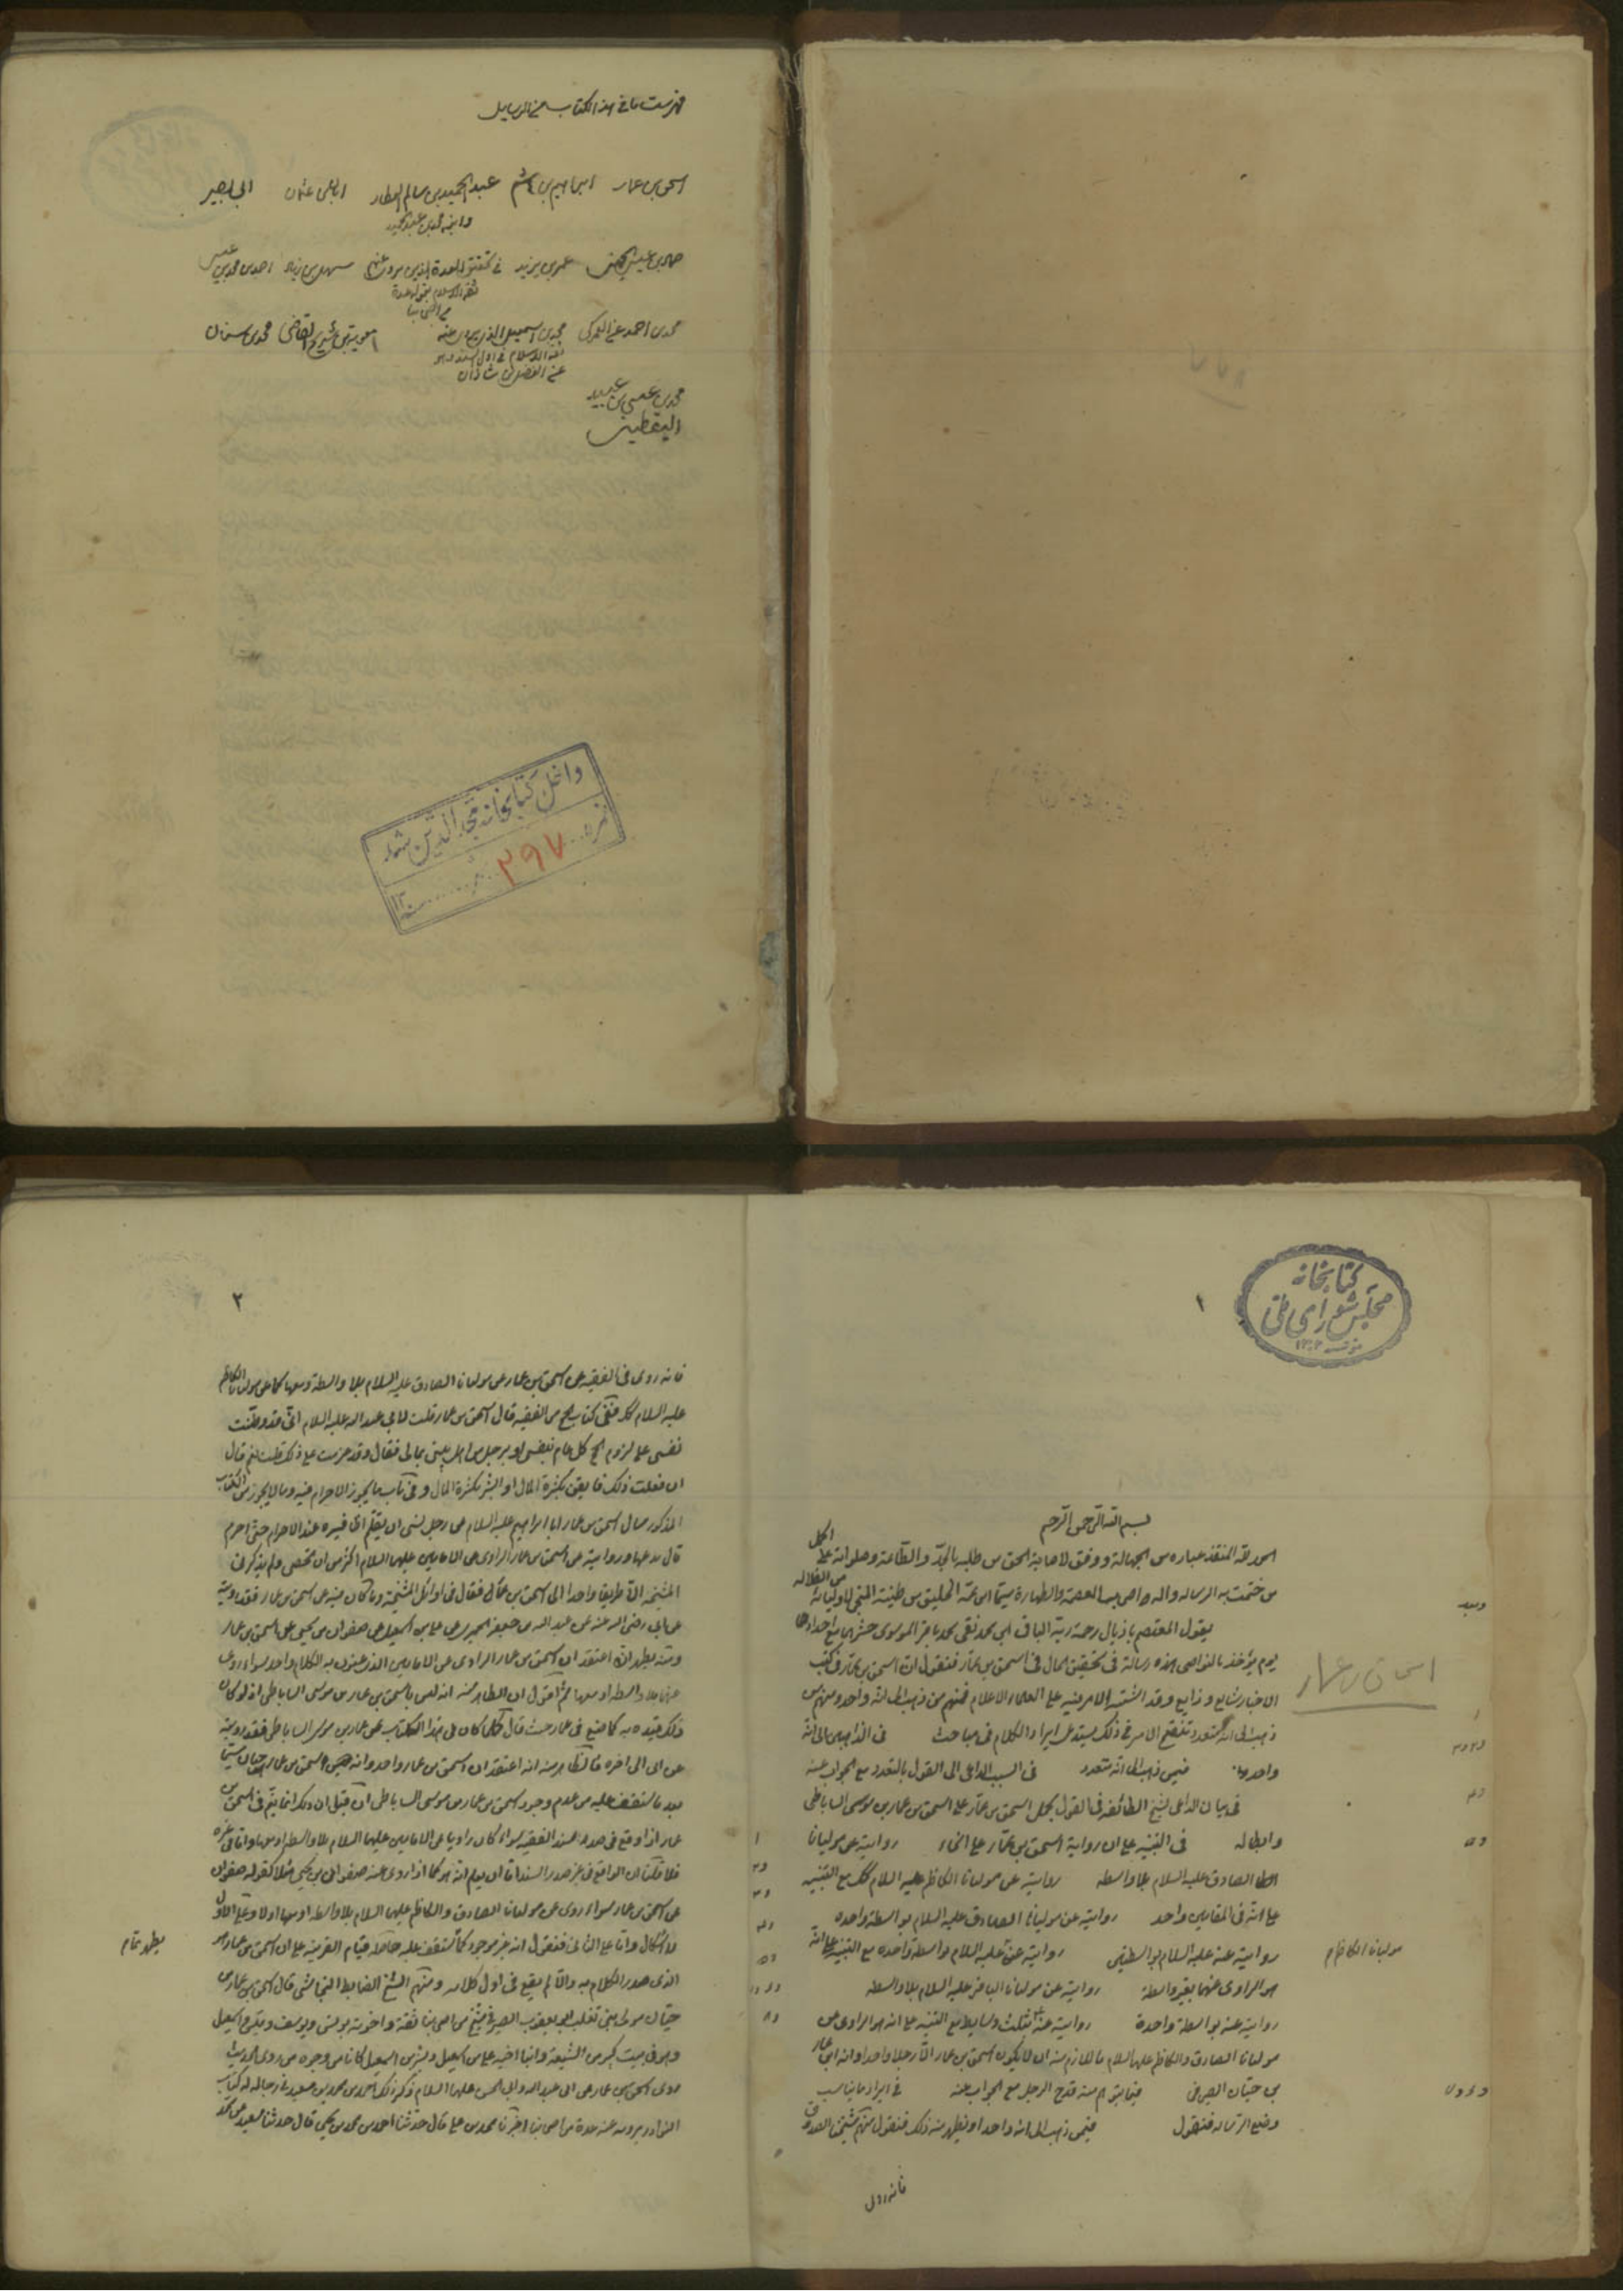 فهرست ما في هذا الكتاب من الرسايل
اسحق بن عمار ابراهيم بن هاشم عبد الحميد بن سالم العطار ابان بن عثمان ابي بصير
وابنه محمد بن عبد الحميد
حماد بن عيسى الجهني عمر بن يزيد في تحقيق العدة الذين يروي عنهم سهل بن زياد احمد بن محمد بن عيسى
ثقة الاسلام بقوله عدة
من اصحابنا
محمد بن احمد عن العمركي محمد بن اسمعيل الذي يروي عنه معوية بن شريح القاضي محمد بن سنان
ثقة الاسلام في اول السند وهو
عن الفضل بن شاذان
محمد بن عيسى بن عبيد
اليقطيني
داخل كتابخانه مجد الدين شد
نمره ٢٩٧
سنه ١٣
كتابخانه
مجلس شوراى ملى
١٣٠٢
١
بسم الله الرحمن الرحيم
الحمد لله المنقذ عباده من الجهالة ووفق لاصابة الحق من طلبه بالجد والطاعة وصلواته على اكمل
من ختمت به الرسالة واله واصحاب العصمة والطهارة سيما ابن عمه الخليق من طينته المنجي لاوليائه من الضلالة
وبعد
يقول المعتصم باذيال رحمة ربه الباقي ابن محمد نقي محمد باقر الموسوي حشرهما مع اجدادهما
يوم يؤخذ بالنواصي هذه رسالة في تحقيق الحال في اسحق بن عمار فنقول ان اسحق بن عمار في كتب
اسحاق بن عمار
الاخبار شايع وذايع وقد اشتبه الامر فيه على العلماء الاعلام فمنهم من ذهب الى انه واحد ومنهم من
ذهب الى انه متعدد تنقيح الامر في ذلك يستدعي ايراد الكلام في مباحث في الذاهبين الى انه
واحد فيمن ذهب الى انه متعدد في السبب الداعي الى القول بالتعدد مع الجواب عنه
في بيان الداعي لشيخ الطائفة في القول بحمل اسحق بن عمار على اسحق بن عمار بن موسى الساباطي
وابطاله في التنبيه على ان رواية اسحق بن عمار على انحاء روايته عن مولينا
الصادق عليه السلام بلا واسطه روايته عن مولانا الكاظم عليه السلام كك مع التنبيه
على انه في المقامين واحد روايته عن مولينا الصادق عليه السلام بواسطة واحده
روايته عنه عليه السلام بواسطتين روايته عنه عليه السلام بواسطة واحده مع التنبيه على انه
مولينا الكاظم
هو الراوي عنهما بغير واسطة روايته عن مولانا الباقر عليه السلام بلا واسطه
روايته عنه بواسطة واحدة روايته عنه بثلث وسايط مع التنبيه على انه هو الراوي عن
مولانا الصادق والكاظم عليهما السلام فاللازم منه ان لا يكون اسحق بن عمار الا رجلا واحدا وانه ابن عمار
بن حيان الصيرفي فيما يتوهم منه قدح الرجل مع الجواب عنه في ايراد ما يناسب
وضع الرسالة فنقول فيمن ذهب الى انه واحد او يظهر منه ذلك فنقول منهم شيخنا الصدوق
فانه روى
٢
فانه روى في الفقيه عن اسحق بن عمار عن مولينا الصادق عليه السلام بلا واسطة ومعها كما عن مولينا الكاظم
عليه السلام كك ففي كتاب الحج من الفقيه قال اسحق بن عمار قلت لابي عبد الله عليه السلام اني قد وطنت
نفسي على لزوم الحج كل عام بنفسي او برجل من اهل بيتي بمالي فقال وقد عزمت على ذلك قلت نعم قال
ان فعلت ذلك فايقن بكثرة المال او ابشر بكثرة المال وفي باب ما يجوز الاحرام فيه وما لا يجوز من الكتاب
المذكور سال اسحق بن عمار ابا ابراهيم عليه السلام عن رجل نسي ان يقلم اظافيره عند الاحرام حتى احرم
قال يدعها وروايته عن اسحق بن عمار الراوي عن الامامين عليهما السلام اكثر من ان تحصى ولم يذكر في
المشيخة الا طريقا واحدا الى اسحق بن عمار فقال في اوائل المشيخة وما كان فيه عن اسحق بن عمار فقد رويته
عن ابي رضي الله عنه عن عبد الله بن جعفر الحميري عن علي بن اسمعيل عن صفوان بن يحيى عن اسحق بن عمار
ومنه يظهر انه اعتقد ان اسحق بن عمار الراوي عن الامامين الذي عنون به الكلام واحد سواء روى
عنهما بلا واسطه او معها ثم اقول ان الظاهر منه انه ليس باسحق بن عمار بن موسى الساباطي اذ لو كان
ذلك قيده به كما صنع في عمار حيث قال كلما كان في هذا الكتاب عن عمار بن موسى الساباطي فقد رويته
عن ابي الى اخره فالظاهر منه انه اعتقد ان اسحق بن عمار واحد وانه اسحق بن عمار بن حيان سيما
بعد ما ستقف عليه من عدم وجود اسحق بن عمار بن موسى الساباطي ان قيل ان ذلك انما يتم في اسحق بن
عمار اذا وقع في صدر سند الفقيه سواء كان راويا عن الامامين عليهما السلام بلا واسطه او معها واما في غيره
فلا قلنا ان الواقع في غير صدر السند اما ان يعلم انه هو كما اذا روى عنه صفوان بن يحيى مثلا كقوله صفوان
عن اسحق بن عمار سواء روى عن مولينا الصادق والكاظم عليهما السلام بلا واسطه او معها اولا وعلى الاول
لا اشكال واما على الثاني فنقول انه غير موجود كما ستقف عليه حاملا قيام القرينة على ان اسحق بن عمار هو
يظهر تمام
الذي صدر الكلام به والا لم يقع في اول كلامه ومنهم الشيخ الضابط النجاشي قال اسحق بن عمار بن
حيان مولى بني تغلب ابو يعقوب الصيرفي شيخ من اصحابنا ثقة واخوته يونس ويوسف وقيس واسمعيل
وهو في بيت كبير من الشيعة وابنا اخيه علي بن اسمعيل وبشر بن اسمعيل كانا من وجوه من روى الحديث
روى اسحق بن عمار عن ابي عبد الله وابي الحسن عليهما السلام ذكر ذلك احمد بن محمد بن سعيد في رجاله له كتاب
النوادر يرويه عنه عدة من اصحابنا اخبرنا محمد بن علي قال حدثنا احمد بن محمد بن يحيى قال حدثنا سعد عن محمد